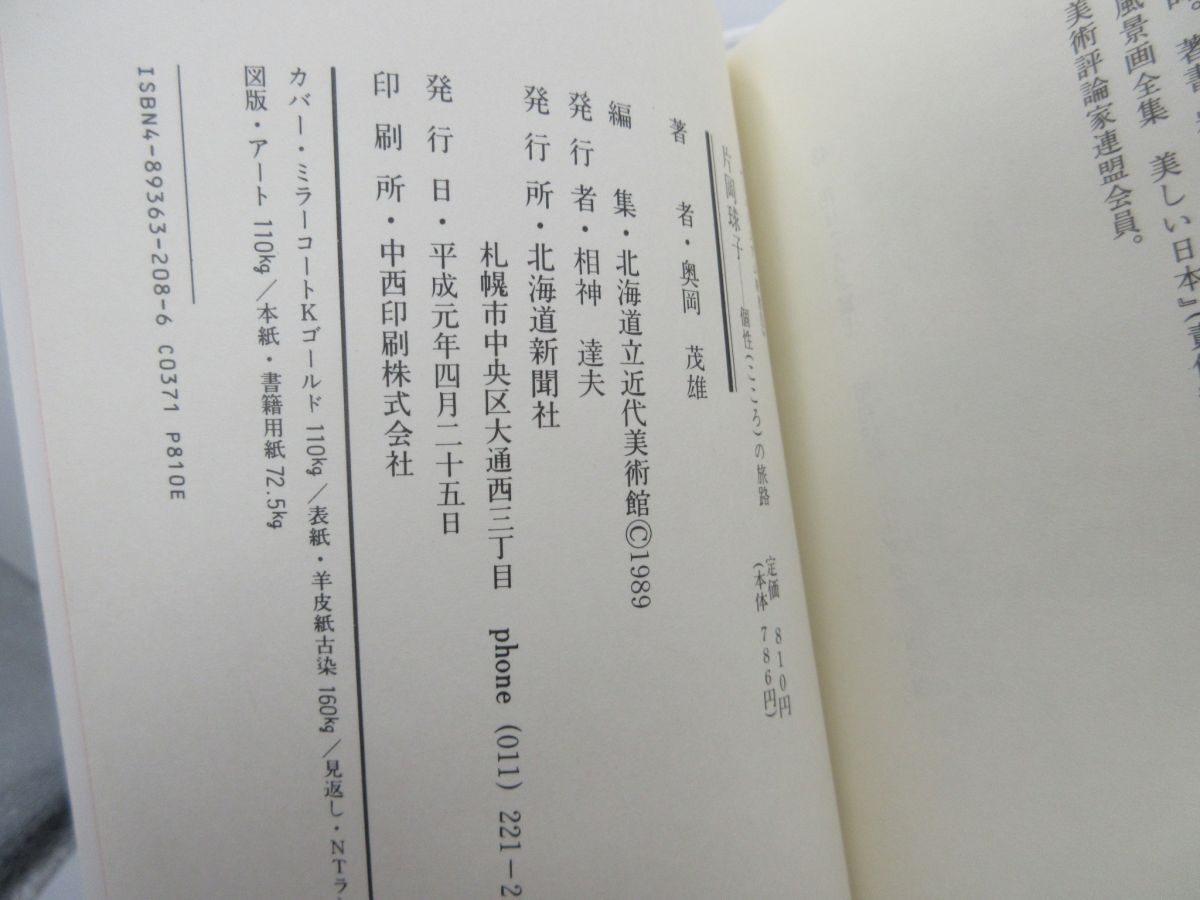 美術評論家連盟会員。
風景画全集　美しい日本』
著書
片岡球子――個性(こころ)の旅路
定価　810円
(本体　786円)
著　者・奥岡　茂雄
編　集・北海道立近代美術館©1989
発行者・相神　達夫
発行所・北海道新聞社
札幌市中央区大通西三丁目　phone (011) 221-2
発行日・平成元年四月二十五日
印刷所・中西印刷株式会社
カバー・ミラーコートKゴールド 110kg/表紙・羊皮紙古染 160kg/見返し・NTラ
図版・アート 110kg/本紙・書籍用紙 72.5kg
ISBN4-89363-208-6 C0371 P810E